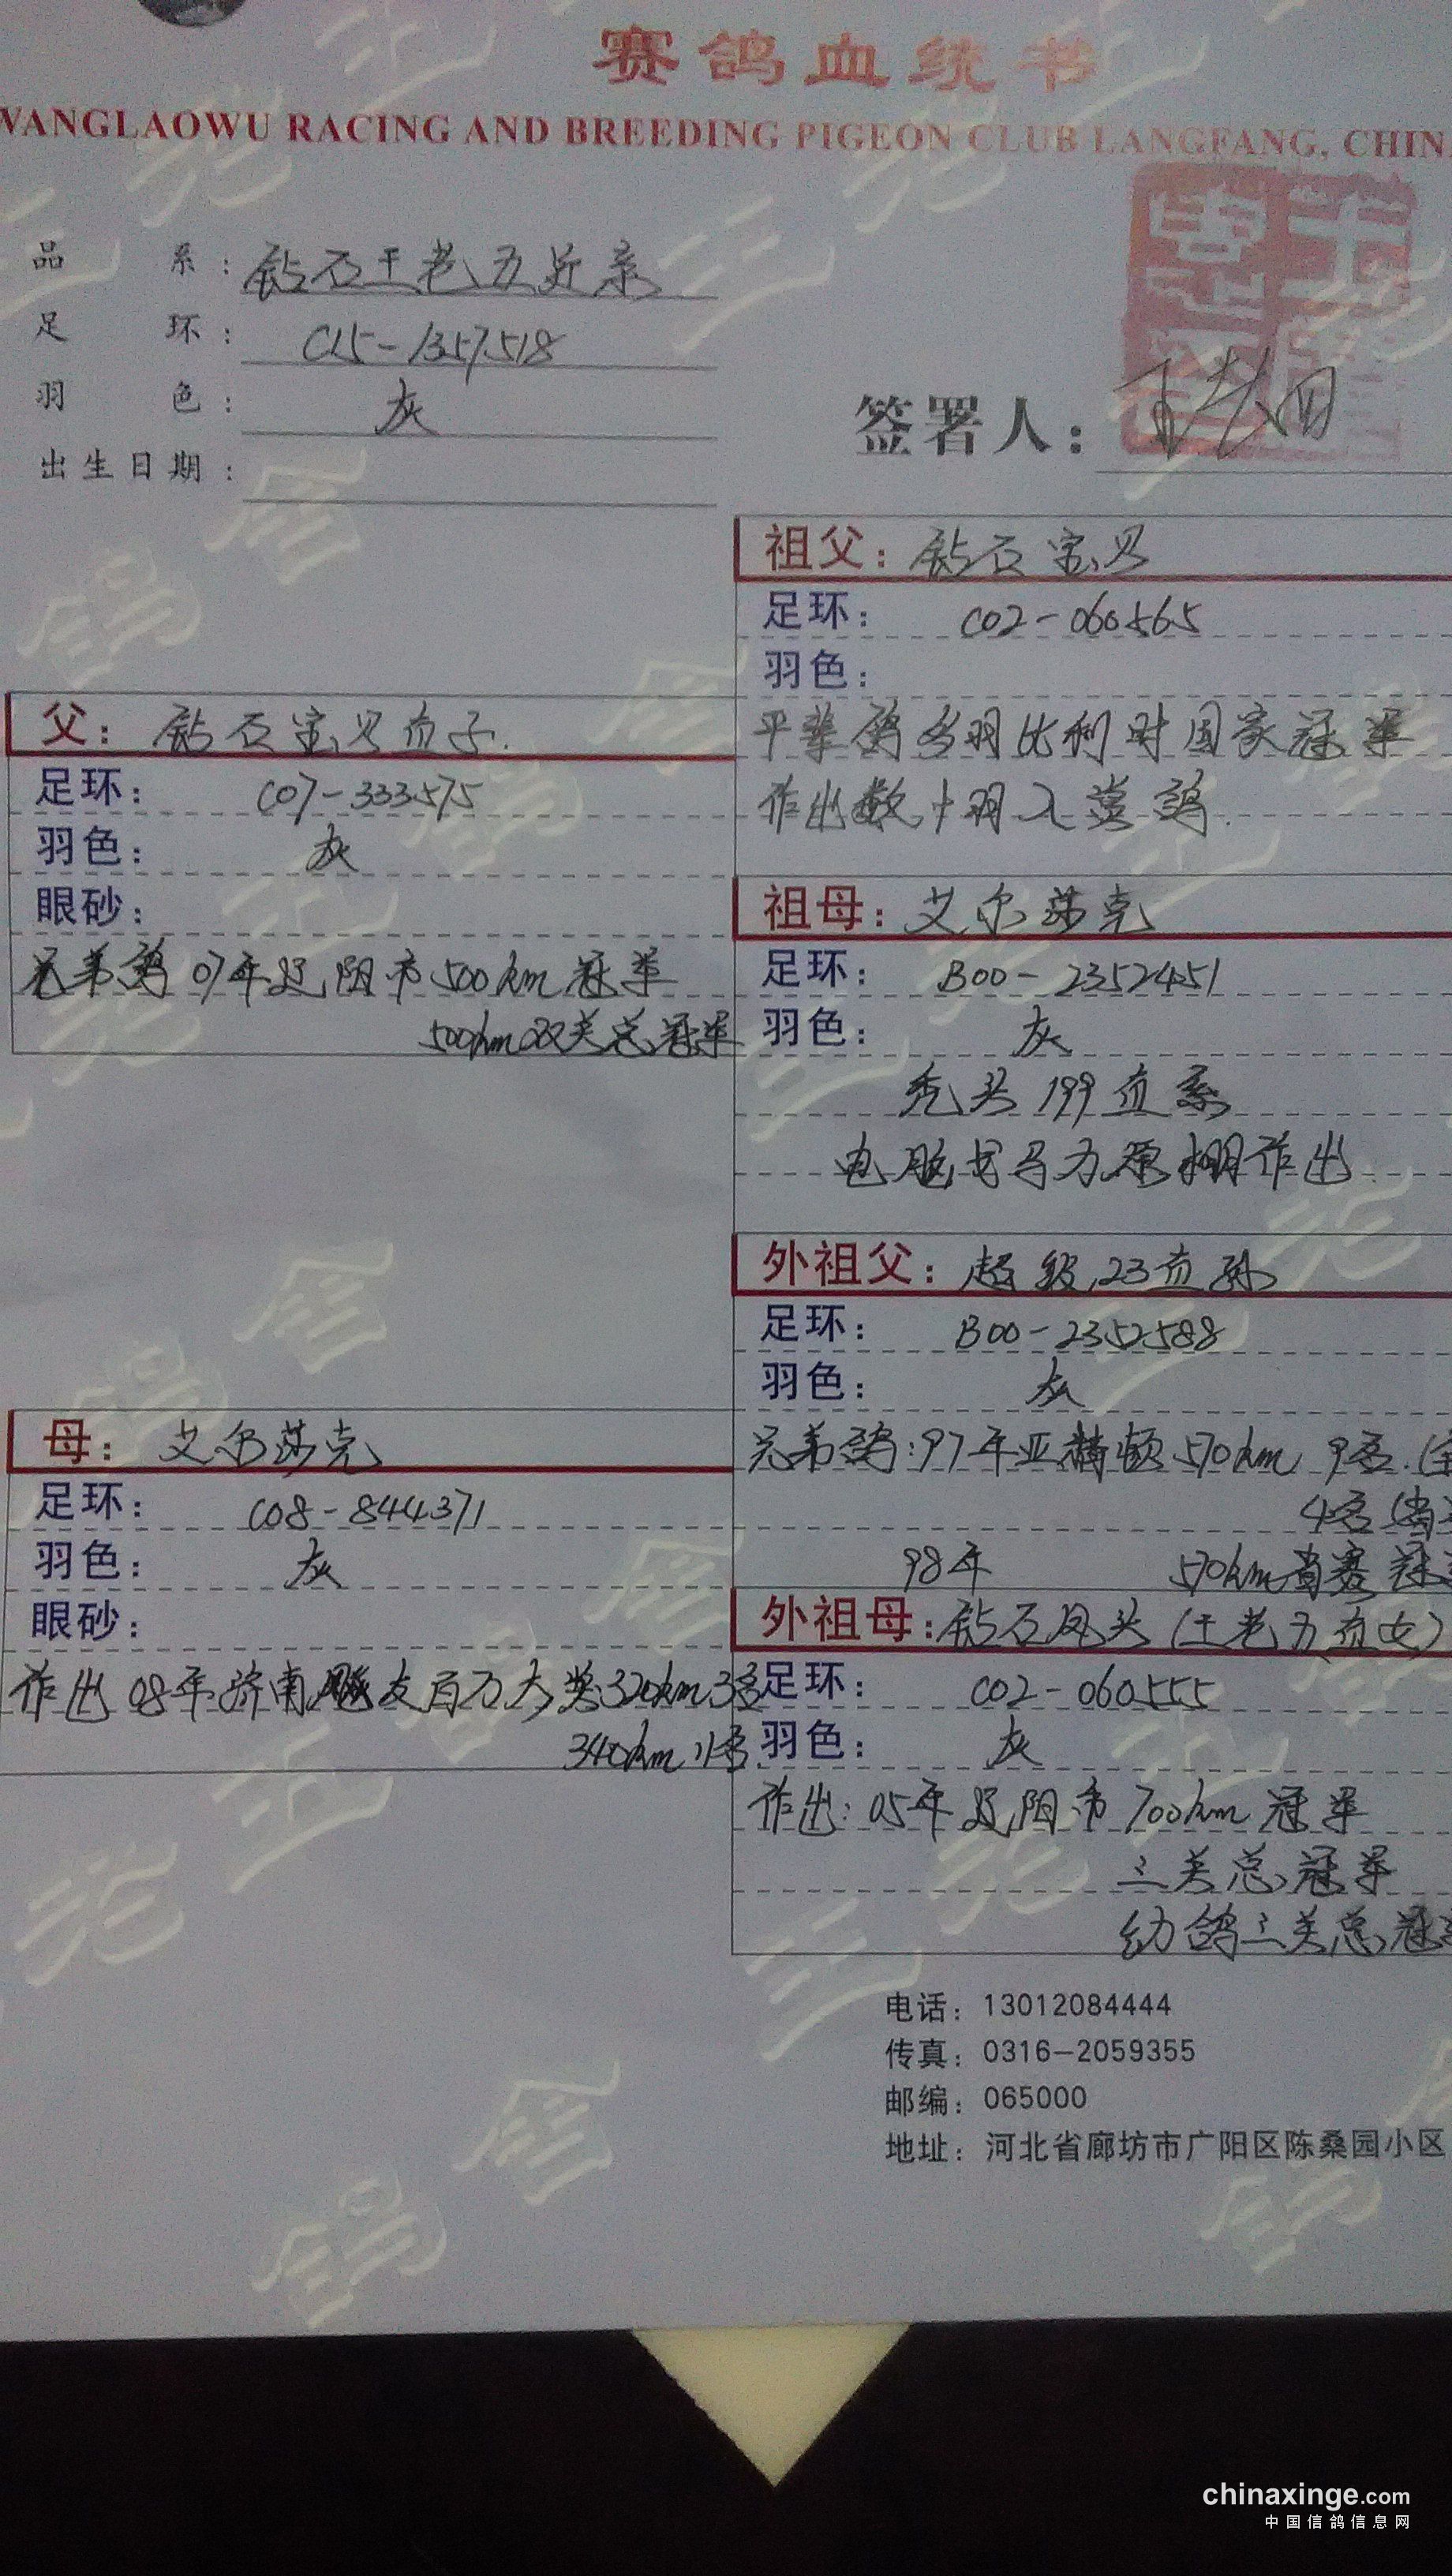 赛鸽血统书
WANGLAOWU RACING AND BREEDING PIGEON CLUB LANGFANG, CHIN
品系：钻石王老五近系
足环：C15-1357518
羽色：灰
出生日期：
签署人：
父：钻石宝贝直子.
足环：C07-333575
羽色：灰
眼砂：
兄弟鸽07年辽阳市500km冠军
500km双关总冠军
母：艾尔莎克
足环：C08-844371
羽色：灰
眼砂：
作出08年济南友百万大奖320km3名
340km11名.
祖父：钻石宝贝
足环：C02-060565
羽色：
平辈鸽多羽比利时国家冠军
作出数十羽入赏鸽.
祖母：艾尔莎克
足环：B00-2352451
羽色：灰
秃头199直系
电脑戈马力原棚作出
外祖父：超级23直孙
足环：B00-2352588
羽色：灰
兄弟鸽：97年亚精顿570km 9名
4名
98年 570km省赛冠
外祖母：钻石凤头（王老五直女）
足环：C02-060555
羽色：灰
作出：05年辽阳市700km冠军
三关总冠军
幼鸽三关总冠
电话：13012084444
传真：0316-2059355
邮编：065000
地址：河北省廊坊市广阳区陈桑园小区
chinaxinge.com
中国信鸽信息网